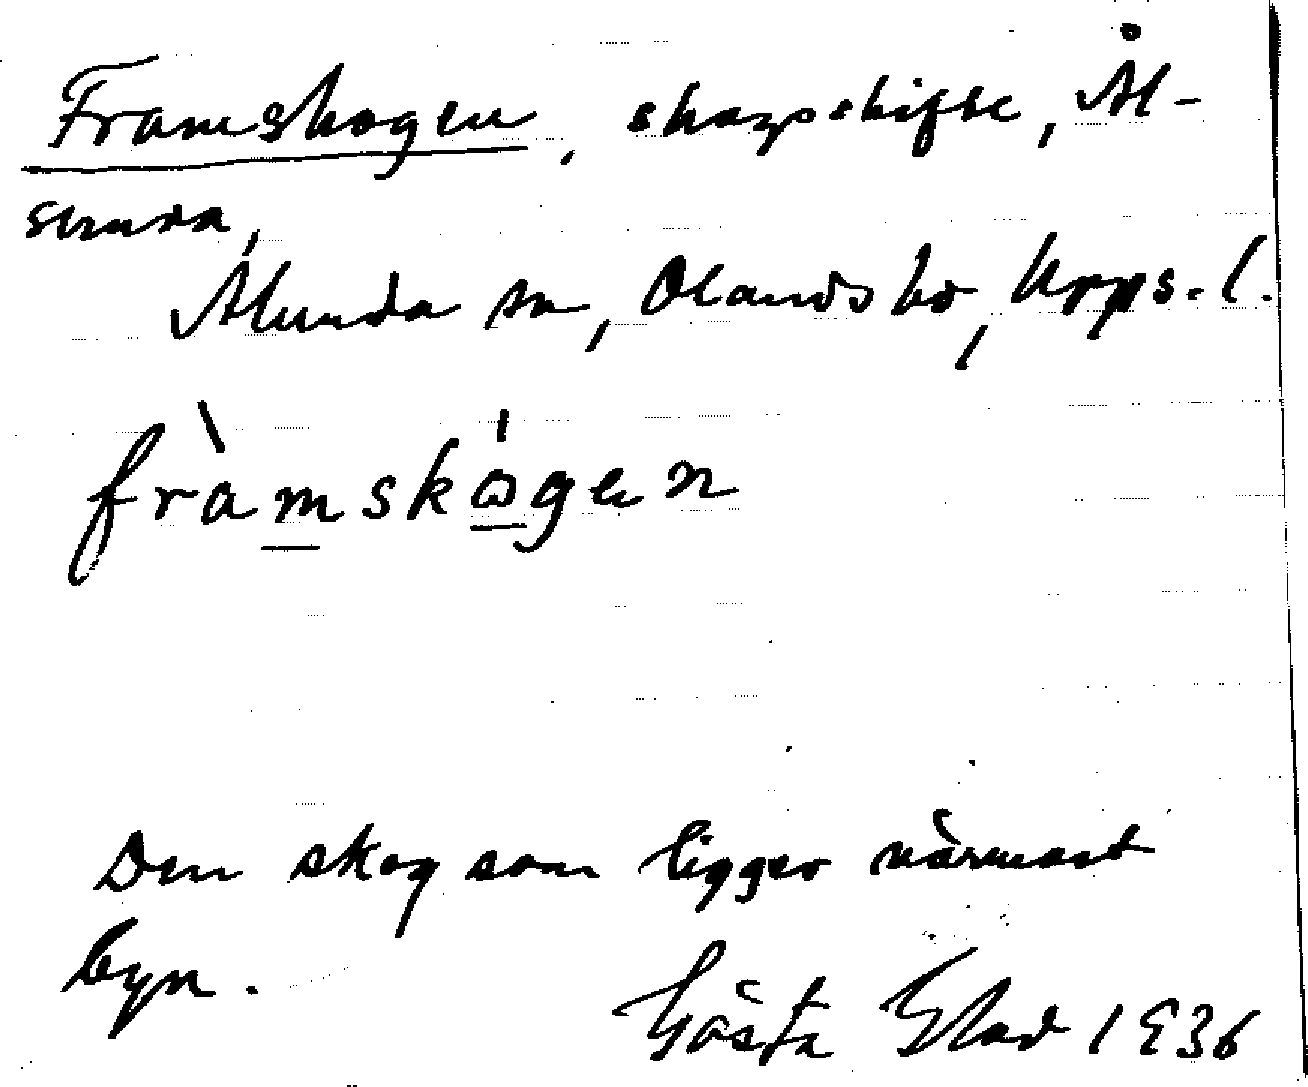 Framskogen, skogsskifte, Ål-
sunda,
Alunda sn, Olands hd, Upps. l.
fràmskǫ́gen
Den skog som ligger närmast
byn.
Gösta Elad 1936